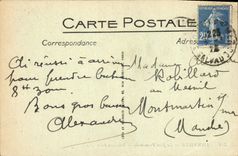 CARTE POSTALE
Correspondance
Adresse
Ai réussi à arriver
pour prendre
8h 30m.
Bons gros baisers
Alexandre
Madame
Robillard
au Mesnil
Montmartin s/ mer
(Manche)